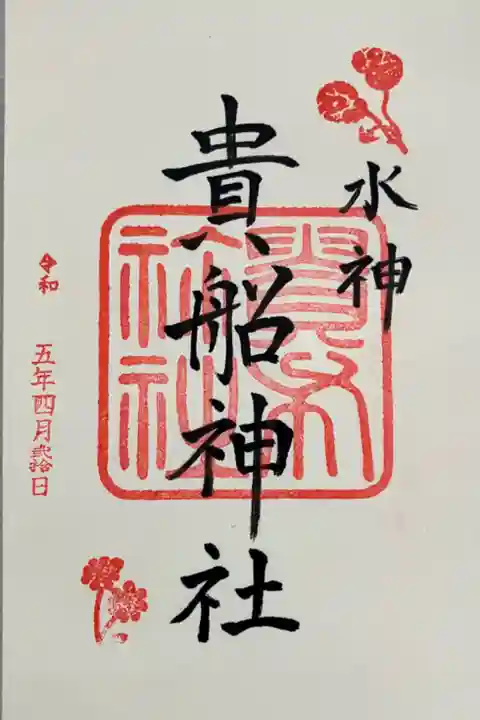 水神
貴船神社
令和 五年四月弐拾日